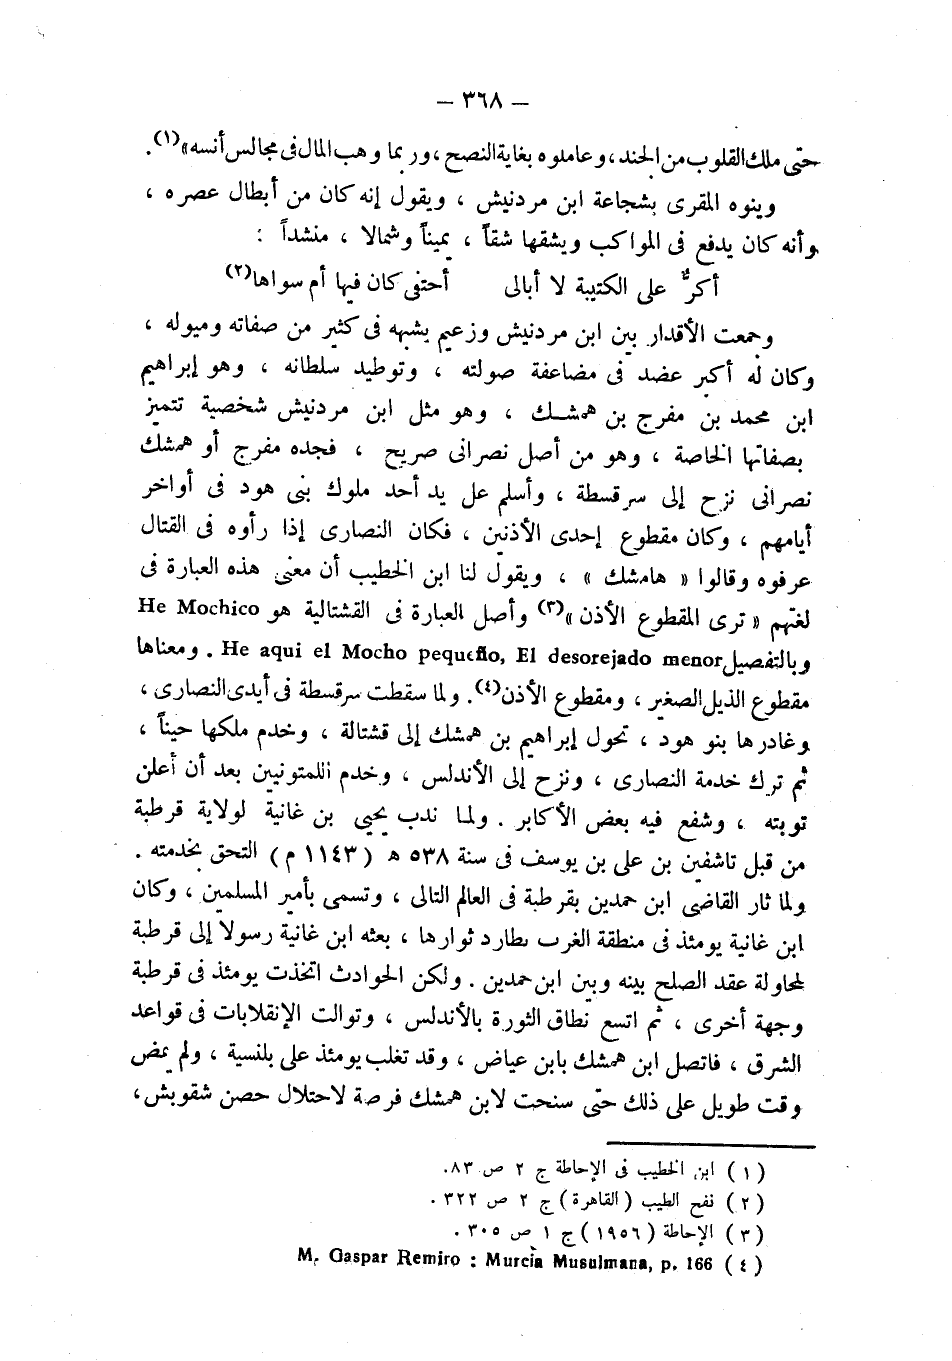 — ٣٦٨ —
حتى ملك القلوب من الجند ، وعاملوه بغاية النصح ، وربما وهب المال فى مجالس أنسه »(١).
وينوه المقرى بشجاعة ابن مردنيش ، ويقول إنه كان من أبطال عصره ،
وأنه كان يدفع فى المواكب ويشقها شقاً ، يميناً وشمالا ، منشداً :
أكرُّ على الكتيبة لا أبالى أحتفى كان فيها أم سواها(٢)
وجمعت الأقدار بين ابن مردنيش وزعيم يشبهه فى كثير من صفاته وميوله ،
وكان له أكبر عضد فى مضاعفة صولته ، وتوطيد سلطانه ، وهو إبراهيم
ابن محمد بن مفرج بن همشك ، وهو مثل ابن مردنيش شخصية تتميز
بصفاتها الخاصة ، وهو من أصل نصرانى صريح ، فجده مفرج أو همشك
نصرانى نزح إلى سرقسطة ، وأسلم عل يد أحد ملوك بنى هود فى أواخر
أيامهم ، وكان مقطوع إحدى الأذنين ، فكان النصارى إذا رأوه فى القتال
عرفوه وقالوا « هامشك » ، ويقول لنا ابن الخطيب أن معنى هذه العبارة فى
لغتهم « ترى المقطوع الأذن »(٣) وأصل العبارة فى القشتالية هو He Mochico
وبالتفصيل He aqui el Mocho pequeño, El desorejado menor . ومعناها
مقطوع الذيل الصغير ، ومقطوع الأذن(٤). ولما سقطت سرقسطة فى أيدى النصارى ،
وغادرها بنو هود ، تحول إبراهيم بن همشك إلى قشتالة ، وخدم ملكها حيناً ،
ثم ترك خدمة النصارى ، ونزح إلى الأندلس ، وخدم اللمتونيين بعد أن أعلن
توبته ، وشفع فيه بعض الأكابر . ولما ندب يحيى بن غانية لولاية قرطبة
من قبل تاشفين بن على بن يوسف فى سنة ٥٣٨ ه ( ١١٤٣ م ) التحق بخدمته .
ولما ثار القاضى ابن حمدين بقرطبة فى العالم التالى ، وتسمى بأمير المسلمين ، وكان
ابن غانية يومئذ فى منطقة الغرب يطارد ثوارها ، بعثه ابن غانية رسولا إلى قرطبة
لمحاولة عقد الصلح بينه وبين ابن حمدين . ولكن الحوادث اتخذت يومئذ فى قرطبة
وجهة أخرى ، ثم اتسع نطاق الثورة بالأندلس ، وتوالت الإنقلابات فى قواعد
الشرق ، فاتصل ابن همشك بابن عياض ، وقد تغلب يومئذ على بلنسية ، ولم يمض
وقت طويل على ذلك حتى سنحت لابن همشك فرصة لاحتلال حصن شقوبش ،
( ١ ) ابن الخطيب فى الإحاطة ج ٢ ص ٨٣.
( ٢ ) نفح الطيب ( القاهرة ) ج ٢ ص ٣٢٢ .
( ٣ ) الإحاطة ( ١٩٥٦ ) ج ١ ص ٣٠٥ .
( ٤ ) M. Gaspar Remiro : Murcia Musulmana, p. 166